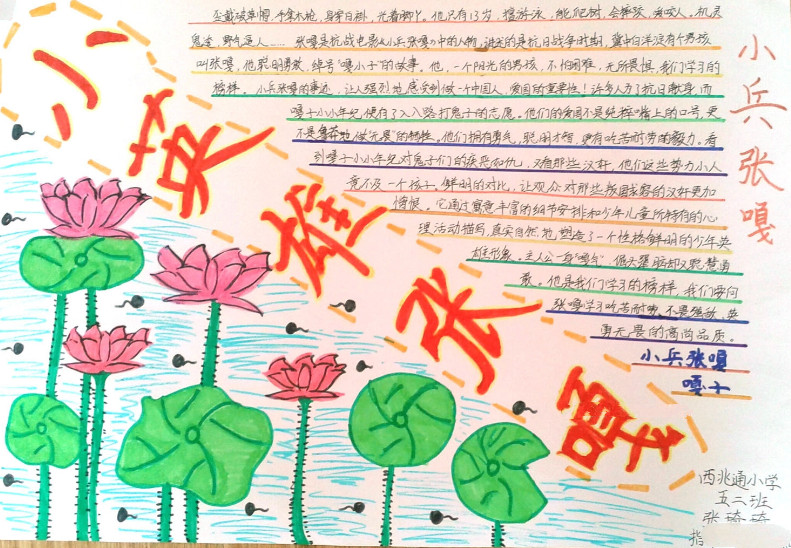 小英雄张嘎
小兵张嘎
歪戴破草帽,手拿木枪,身穿白褂,光着脚丫。他只有13岁,擅游泳,能爬树,会摔跤,爱咬人。机灵
鬼造,野气逼人……张嘎是抗战电影《小兵张嘎》中的人物。讲述的是抗日战争时期,冀中白洋淀有个男孩
叫张嘎,他聪明勇敢,绰号"嘎小子"的故事。他,一个阳光的男孩,不怕困难,无所畏惧,我们学习的
榜样。小兵张嘎的事迹,让人强烈地感受到做一个中国人,爱国的重要性!许多人为了抗日献身,而
嘎子小小年纪便有了入八路打鬼子的志愿。他们的爱国不是纯粹嘴上的口号,更
不是盲目地做无畏"的牺牲。他们拥有勇气,聪明才智,更有吃苦耐劳的毅力。看
到嘎子小小年纪对鬼子们的疾恶如仇,又看那些汉奸,他们这些势力小人
竟不及一个孩子。鲜明的对比,让观众对那些叛国求荣的汉奸更加
愤恨。它通过寓意丰富的细节安排和少年儿童所特有的心
理活动描写,真实自然地塑造了一个性格鲜明的少年英
雄形象。主人公一身"嘎气",但天罗脑却又聪慧勇
敢。他是我们学习的榜样,我们要向
张嘎学习吃苦耐劳,不畏强敌,英
勇无畏的高尚品质。
小兵张嘎
嘎子
西兆通小学
五二班
张琦琦
指